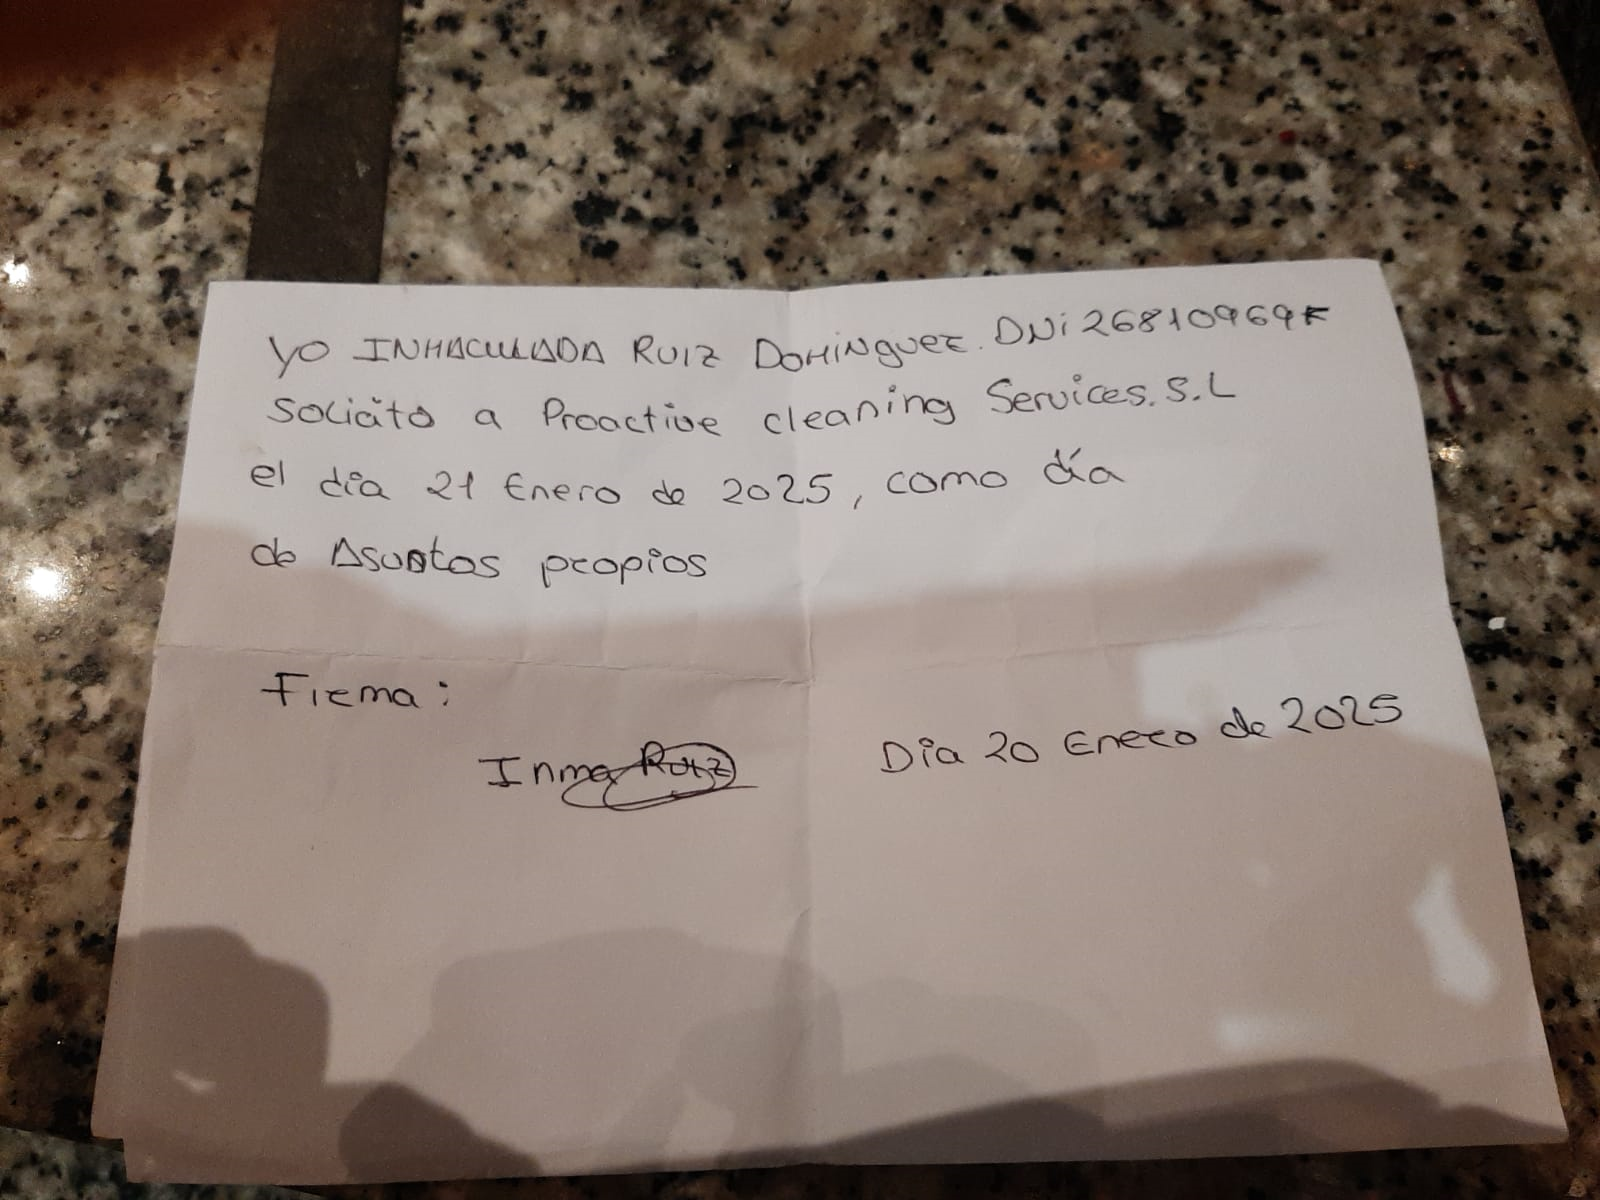 Yo INMACULADA RUIZ DOMINGUEZ. DNi 26810969K
Solicito a Proactive cleaning Services. S.L
el día 21 Enero de 2025, como día
de Asuntos propios
Firma:
Inma Ruiz
Día 20 Enero de 2025